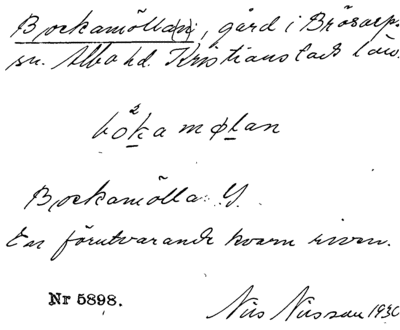 Bockamölla(n), gård i Brösarps
sn. Albo hd. Kristianstads län.
bo²kamølan
Bockamölla: Y.
En förutvarande kvarn riven.
Nr 5898.
Nils Nilsson 1930